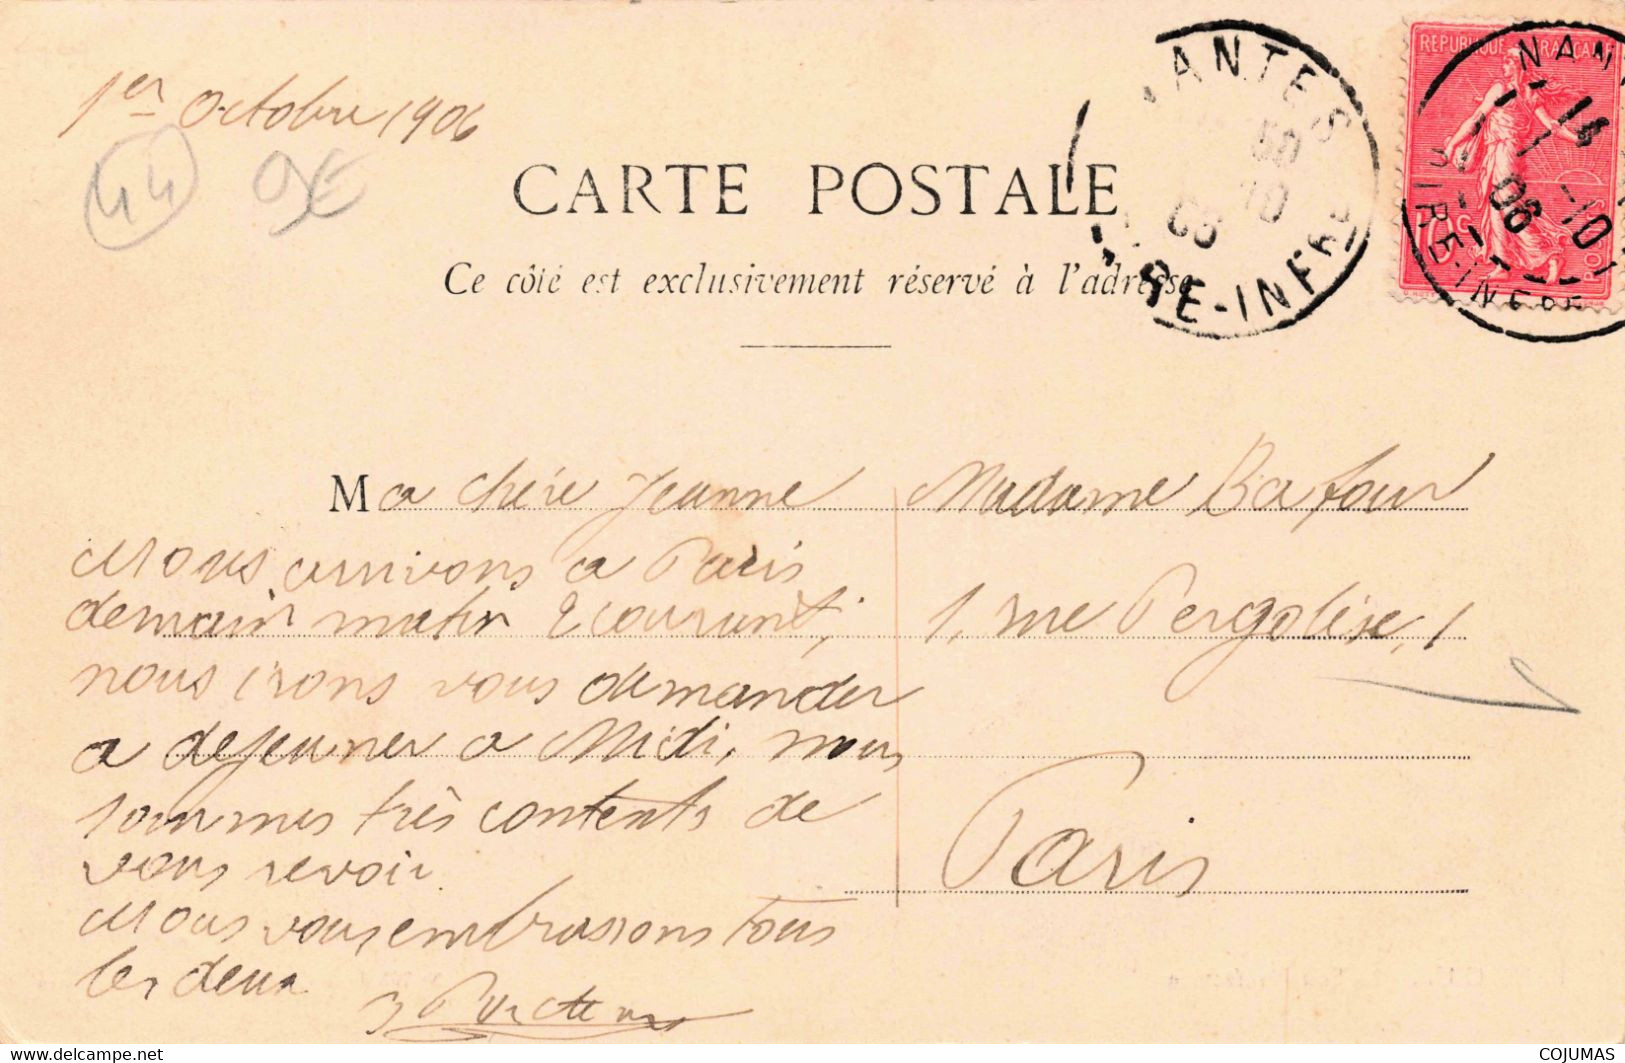 1er Octobre 1906
44
CARTE POSTALE
Ce côté est exclusivement réservé à l'adresse
NANTES
LOIRE-INFRE
10
06
REPUBLIQUE FRANÇAISE
10c
POSTES
14
1-10
06
Ma chère Jeanne
Nous arrivons a Paris
demain matin 2 courant,
nous irons vous demander
a dejeuner a Midi, nous
sommes très contents de
vous revoir
Nous vous embrassons tous
les deux
Madame Bafour
1, rue Pergolèse, 1
Paris
www.delcampe.net
COJUMAS